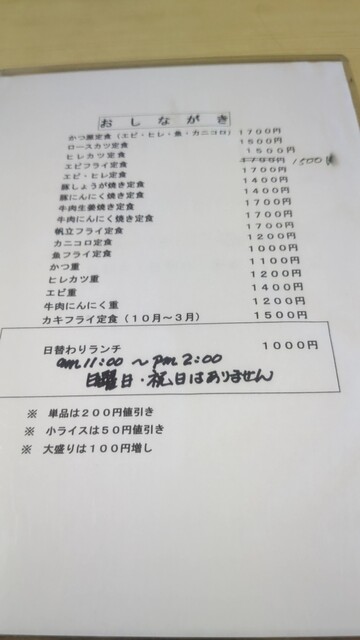 おしながき
かつ定食(エビ・ヒレ・魚・カニコロ) 1700円
ロースカツ定食 1500円
ヒレカツ定食 1500円
エビフライ定食 1700円 1500円
エビ・ヒレ定食 1700円
豚しょうが焼き定食 1400円
豚にんにく焼き定食 1400円
牛肉生姜焼き定食 1700円
牛肉にんにく焼き定食 1700円
帆立フライ定食 1700円
カニコロ定食 1200円
魚フライ定食 1000円
かつ重 1100円
ヒレカツ重 1200円
エビ重 1400円
牛肉にんにく重 1200円
カキフライ定食(10月〜3月) 1500円
日替わりランチ 1000円
am 11:00 〜 pm 2:00
日曜日・祝日はありません
※ 単品は200円値引き
※ 小ライスは50円値引き
※ 大盛りは100円増し